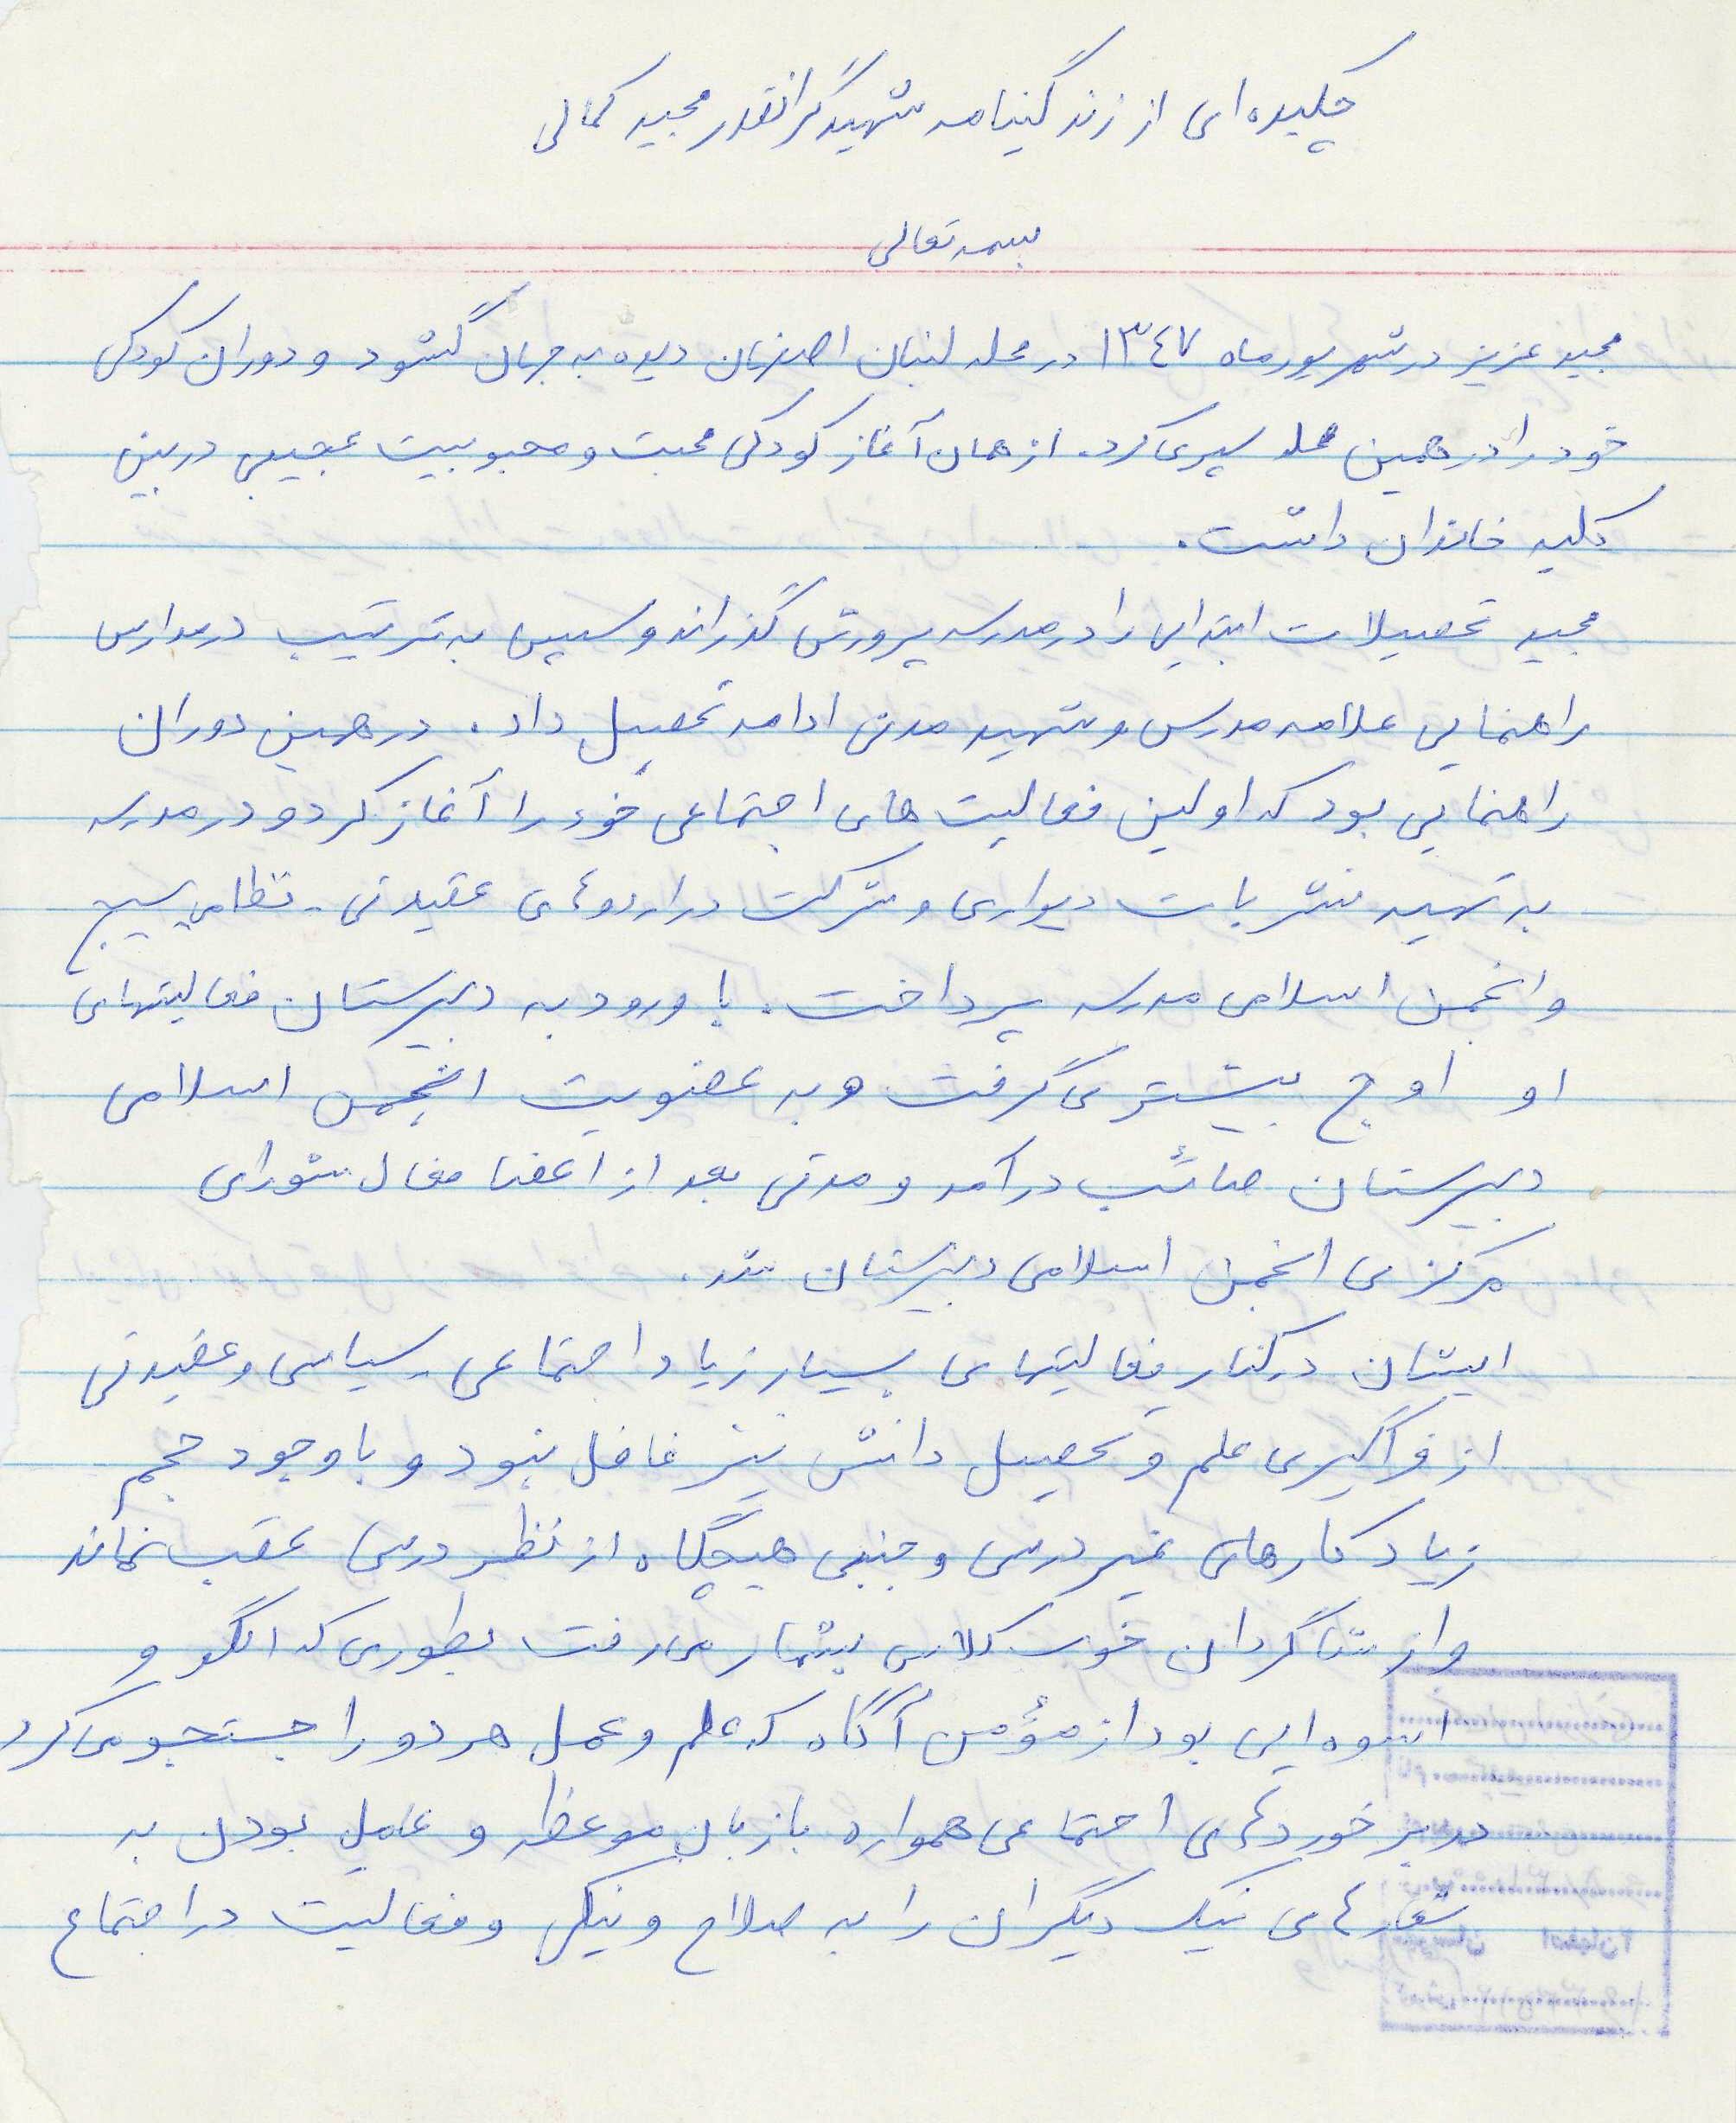 چکیده ای از زندگینامه شهید گرانقدر مجید کمالی
بسمه تعالی
مجید عزیز در شهریور ماه ۱۳۴۷ در محله لنبان اصفهان دیده به جهان گشود و دوران کودکی
خود را در همین محله سپری کرد. از همان آغاز کودکی محبت و محبوبیت عجیبی در بین
کلیه خاندان داشت.
مجید تحصیلات ابتدایی را در مدرسه پرورش گذراند و سپس به ترتیب در مدارس
راهنمایی علامه مدرس و شهید مدنی ادامه تحصیل داد. در همین دوران
راهنمایی بود که اولین فعالیت های اجتماعی خود را آغاز کرد و در مدرسه
به تهیه نشریات دیواری و شرکت در اردوهای عقیدتی - نظامی بسیج
و انجمن اسلامی مدرسه پرداخت. با ورود به دبیرستان فعالیتهای
او اوج بیشتری گرفت و به عضویت انجمن اسلامی
دبیرستان صائب درآمد و مدتی بعد از اعضا فعال شورای
مرکزی انجمن اسلامی دبیرستان شد.
ایشان در کنار فعالیتهای بسیار زیاد اجتماعی - سیاسی و عقیدتی
از فراگیری علم و تحصیل دانش نیز غافل نبود و با وجود حجم
زیاد کارهای غیر درسی و جنبی هیچگاه از نظر درسی عقب نماند
و از شاگردان خوب کلاس بشمار می رفت بطوری که الگو و
اسوه ایی بود از مؤمن آگاه که علم و عمل هر دو را جستجو می کرد
در برخوردهای اجتماعی همواره با زبان موعظه و عامل بودن به
شعارهای نیک دیگران را به صلاح و نیکی و فعالیت در اجتماع